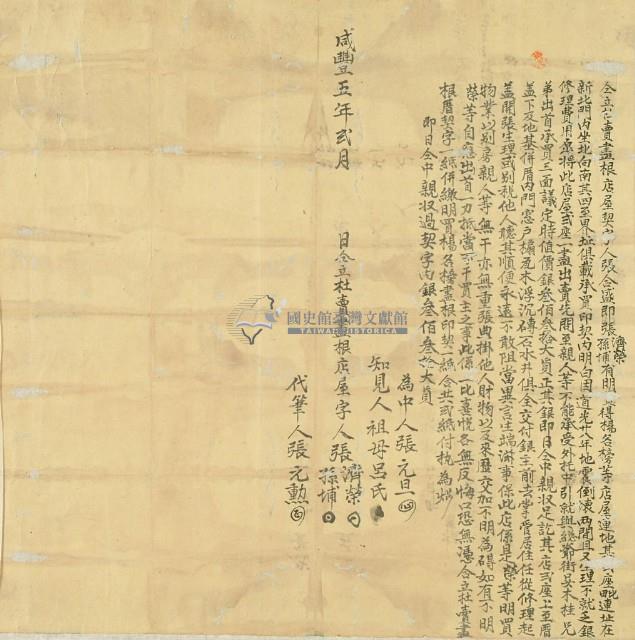 仝立杜賣盡根店屋契字人張合盛即張濟榮孫埔有明買得楊各榜等店屋連地基弍座毗連址在
新北門內坐北向南其四至界址俱載承買印契內明白因道光廿八年地震倒壞兩間且又生理不就乏銀
修理費用愿將此店屋弍座一盡出賣先問至親人等不能承受外托中引就與總爺街吳木桂兄
弟出首承買三面議定時值價銀叁佰叁拾大員正其銀即日仝中親收足訖其店弍座上至厝
蓋下及地基併厝內門窓戶橘瓦木浮沉磚石水井俱全交付銀主前去掌管居住任從修理起
蓋開張生理或別稅他人聽其順便永遠不敢阻當異言生端滋事保此店係是榮等明買
物業以別房親人等無干亦無重張典掛他人財物以及來歷交加不明為碍如有不明
榮等自應出首一力抵當不干買主之事此係二比喜悅各無反悔口恐無憑仝立杜賣盡
根厝契字一紙併繳明買楊各榜盡根印契一紙合共弍紙付執為炤
即日仝中親收過契字內銀叁佰叁拾大員
為中人張元旦
知見人祖母呂氏
咸豐五年弍月 日仝立杜賣盡根店屋字人張濟榮孫埔
代筆人張元勲
國史館臺灣文獻館
TAIWAN HISTORICA